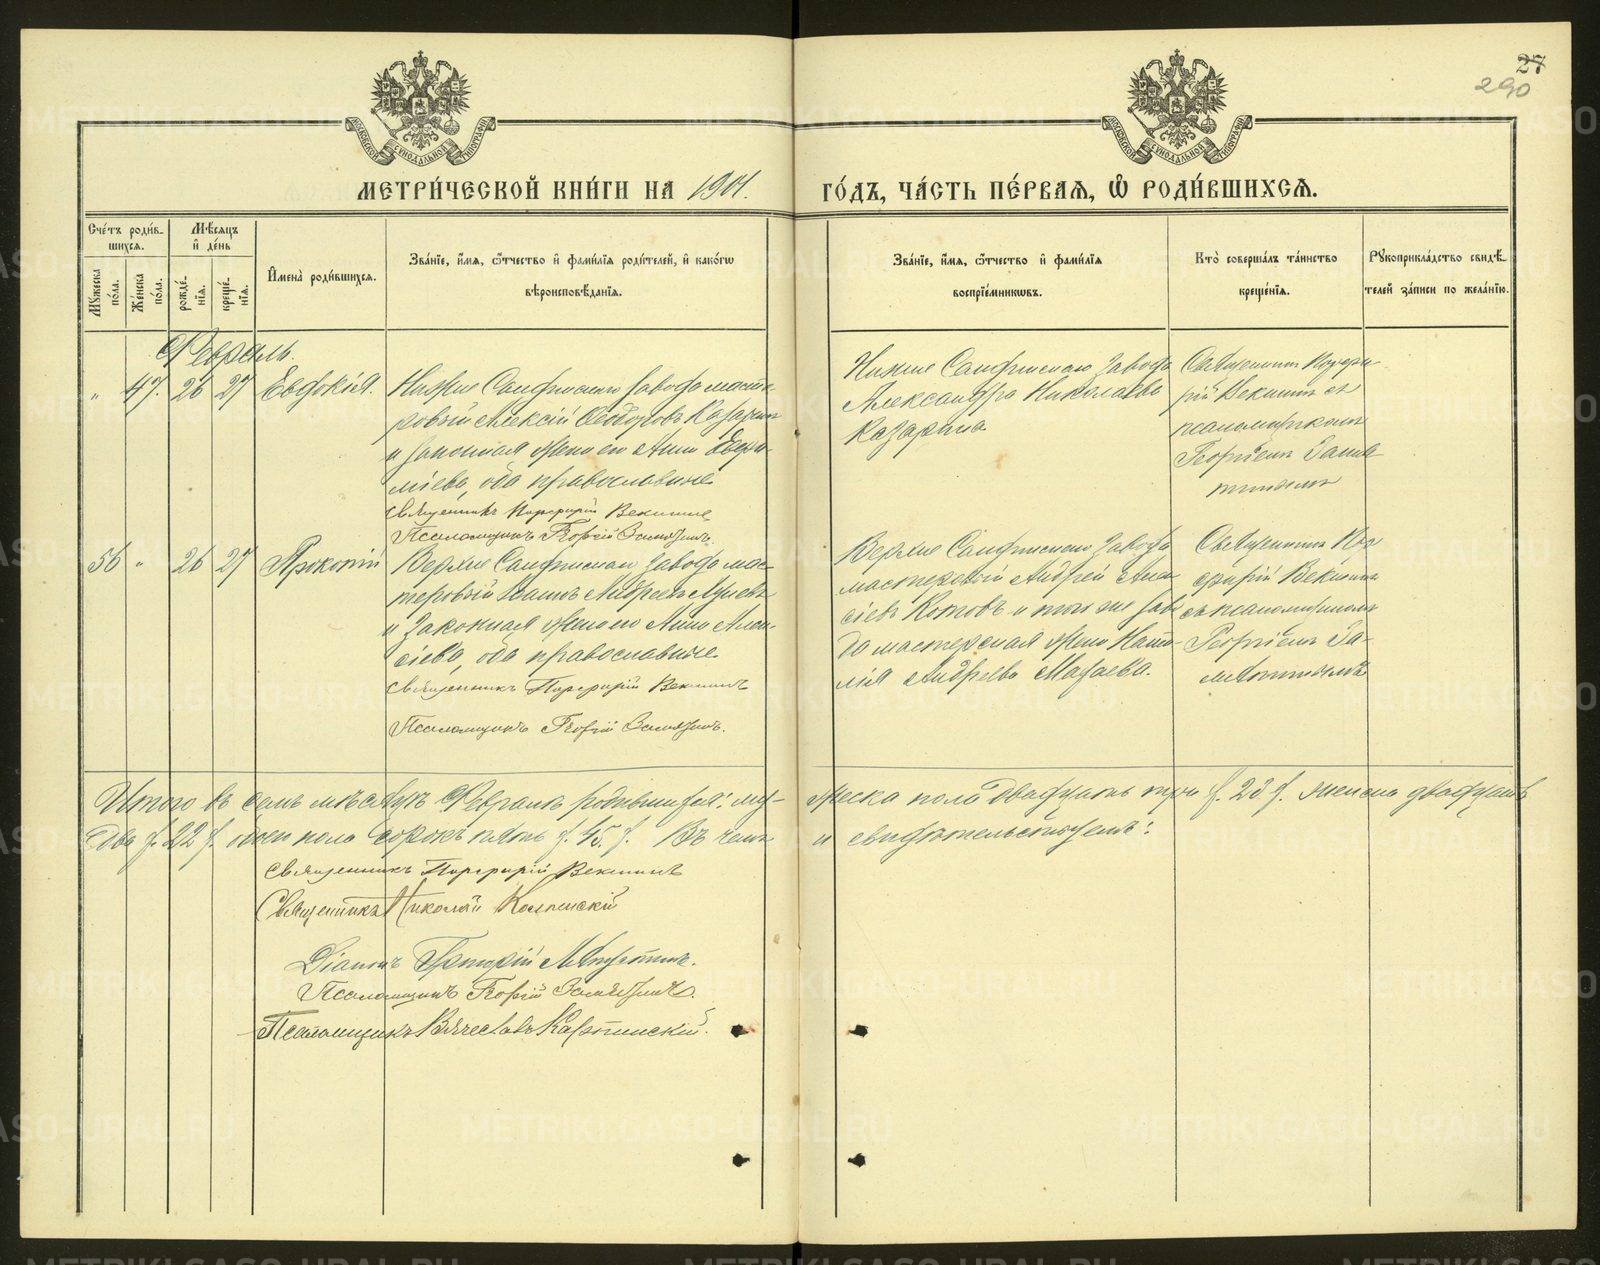 27
290
МОСКОВСКОЙ СѴНОДАЛЬНОЙ ТИПОГРАФІИ
МОСКОВСКОЙ СѴНОДАЛЬНОЙ ТИПОГРАФІИ
МЕТРИ́ЧЕСКОЙ КНИ́ГИ НА 1901. ГО́ДЪ, ЧА́СТЬ ПЕ́РВАЯ, Ѽ РОДИ́ВШИХСЯ.
Сче́тъ роди́в-
шихся.
Мꙋжеска по́ла.
Же́нска по́ла.
Мѣ́сяцъ
и҆ де́нь
рожде́-
нїя.
креще́-
нїя.
И҆мена̀ роди́вшихся.
Зва́нїе, и҆́мя, ѻ҆́тчество и҆ фами́лїя роди́телей, и҆ како́гѡ
вѣроисповѣ́данїя.
Зва́нїе, и҆́мя, ѻ҆́тчество и҆ фами́лїя
воспрїе́мникѡвъ.
Кто̀ соверша́лъ та́инство
креще́нїя.
Рꙋкоприкла́дство свидѣ́-
телей за́писи по жела́нїю.
Февраль.
" 47. 26 27 Евдокія.
Нижне Саифтскаго завода масте-
ровый Алексій Ѳеодоровъ Казаринъ
и законная жена его Анна
оба православные
Священникъ Порфирій Векшинъ
Псаломщикъ Георгій Замятинъ.
Нижне Саифтскаго завода
Александра Николаева
Казарина
Священникъ Порфи-
рій Векшинъ съ
псаломщикомъ
Георгіемъ Замя-
тинымъ
56 " 26 27 Прокопій
Верхне Саифтскаго завода мас-
теровый Андреевъ
и законная жена его Анна Алек-
сіева, оба православные
Священникъ Порфирій Векшинъ
Псаломщикъ Георгій Замятинъ.
Верхне Саифтскаго завода
мастеровый Андрей Алек-
сіевъ Котовъ и того же заво
да мастерская жена Ната-
лія Андреева Мазаева.
Священникъ Пор-
фирій Векшинъ
съ псаломщикомъ
Георгіемъ За-
мятинымъ
Итого въ семъ мѣсяцѣ Февралѣ родившихся: му-
жеска пола двадцать три /23/. женска двадцать
два /22/. обоего пола сорокъ пять /45/. Въ чемъ
и свидѣтельствуемъ:
Священникъ Порфирій Векшинъ
Священникъ Николай
Діаконъ Григорій
Псаломщикъ Георгій Замятинъ.
Псаломщикъ Вячеславъ
METRIKI.GASO-URAL.RU